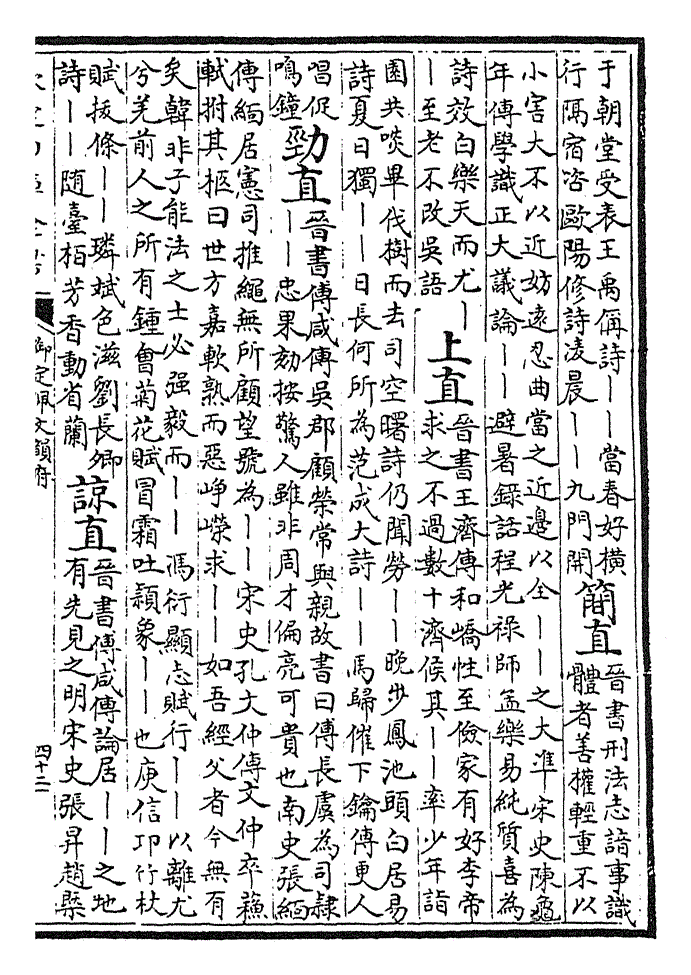 于朝堂受表王禹偁詩——當春好橫
行隔宿咨歐陽修詩凌晨——九門開
簡直
晉書刑法志諳事識
體者善權輕重不以
小害大不以近妨遠忍曲當之近邊以全——之大凖宋史陳龜
年傳學識正大議論——避暑錄話程光祿師孟樂易純質喜為
詩效白樂天而尤—
—至老不改吳語
上直
晉書王濟傳和嶠性至儉家有好李帝
求之不過數十濟候其——率少年詣
園共啖畢伐樹而去司空曙詩仍聞勞——晚步鳳池頭白居易
詩夏日獨——日長何所為范成大詩——馬歸催下鑰傳更人
唱促
鳴鐘
勁直
晉書傅咸傳吳郡顧榮常與親故書曰傅長虞為司隸
——忠果劾按驚人雖非周才偏亮可貴也南史張緬
傳緬居憲司推繩無所顧望號為——宋史孔文仲傳文仲卒蘇
軾拊其柩曰世方嘉軟熟而惡崢嶸求——如吾經父者今無有
矣韓非子能法之士必强毅而——馮衍顯志賦行——以離尤
兮羌前人之所有鍾會菊花賦冒霜吐穎象——也庾信邛竹杖
賦拔條——璘斌色滋劉長卿
詩——随臺栢芳香動省蘭
諒直
晉書傅咸傳論居——之地
有先見之明宋史張昇趙槩
御定佩文韻府
四十二